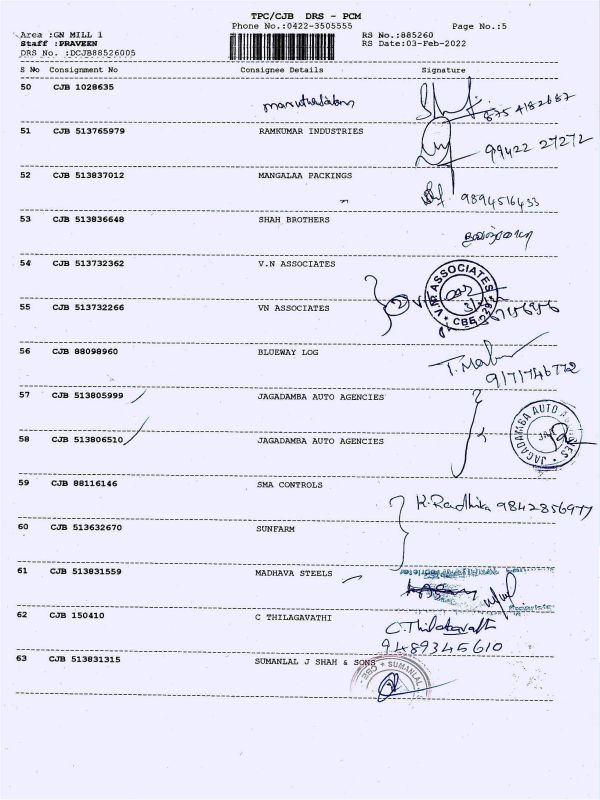 TPC/CJB DRS - PCM
Phone No.:0422-3505555 Page No.:5
Area :GN MILL 1 RS No.:885260
Staff :PRAVEEN RS Date:03-Feb-2022
DRS No. :DCJB88526005
S No Consignment No Consignee Details Signature
50 CJB 1028635
51 CJB 513765979 RAMKUMAR INDUSTRIES 99422 27272
52 CJB 513837012 MANGALAA PACKINGS 9894516433
53 CJB 513836648 SHAH BROTHERS
54 CJB 513732362 V.N ASSOCIATES
55 CJB 513732266 VN ASSOCIATES
56 CJB 88098960 BLUEWAY LOG
9171746772
57 CJB 513805999 JAGADAMBA AUTO AGENCIES
58 CJB 513806510 JAGADAMBA AUTO AGENCIES
JAGADAMBA AUTO AGENCIES
59 CJB 88116146 SMA CONTROLS
K.Radhika 9842856977
60 CJB 513632670 SUNFARM
61 CJB 513831559 MADHAVA STEELS
62 CJB 150410 C THILAGAVATHI
C.Thilagavathi
9489345610
63 CJB 513831315 SUMANLAL J SHAH & SONS
SUMANLAL